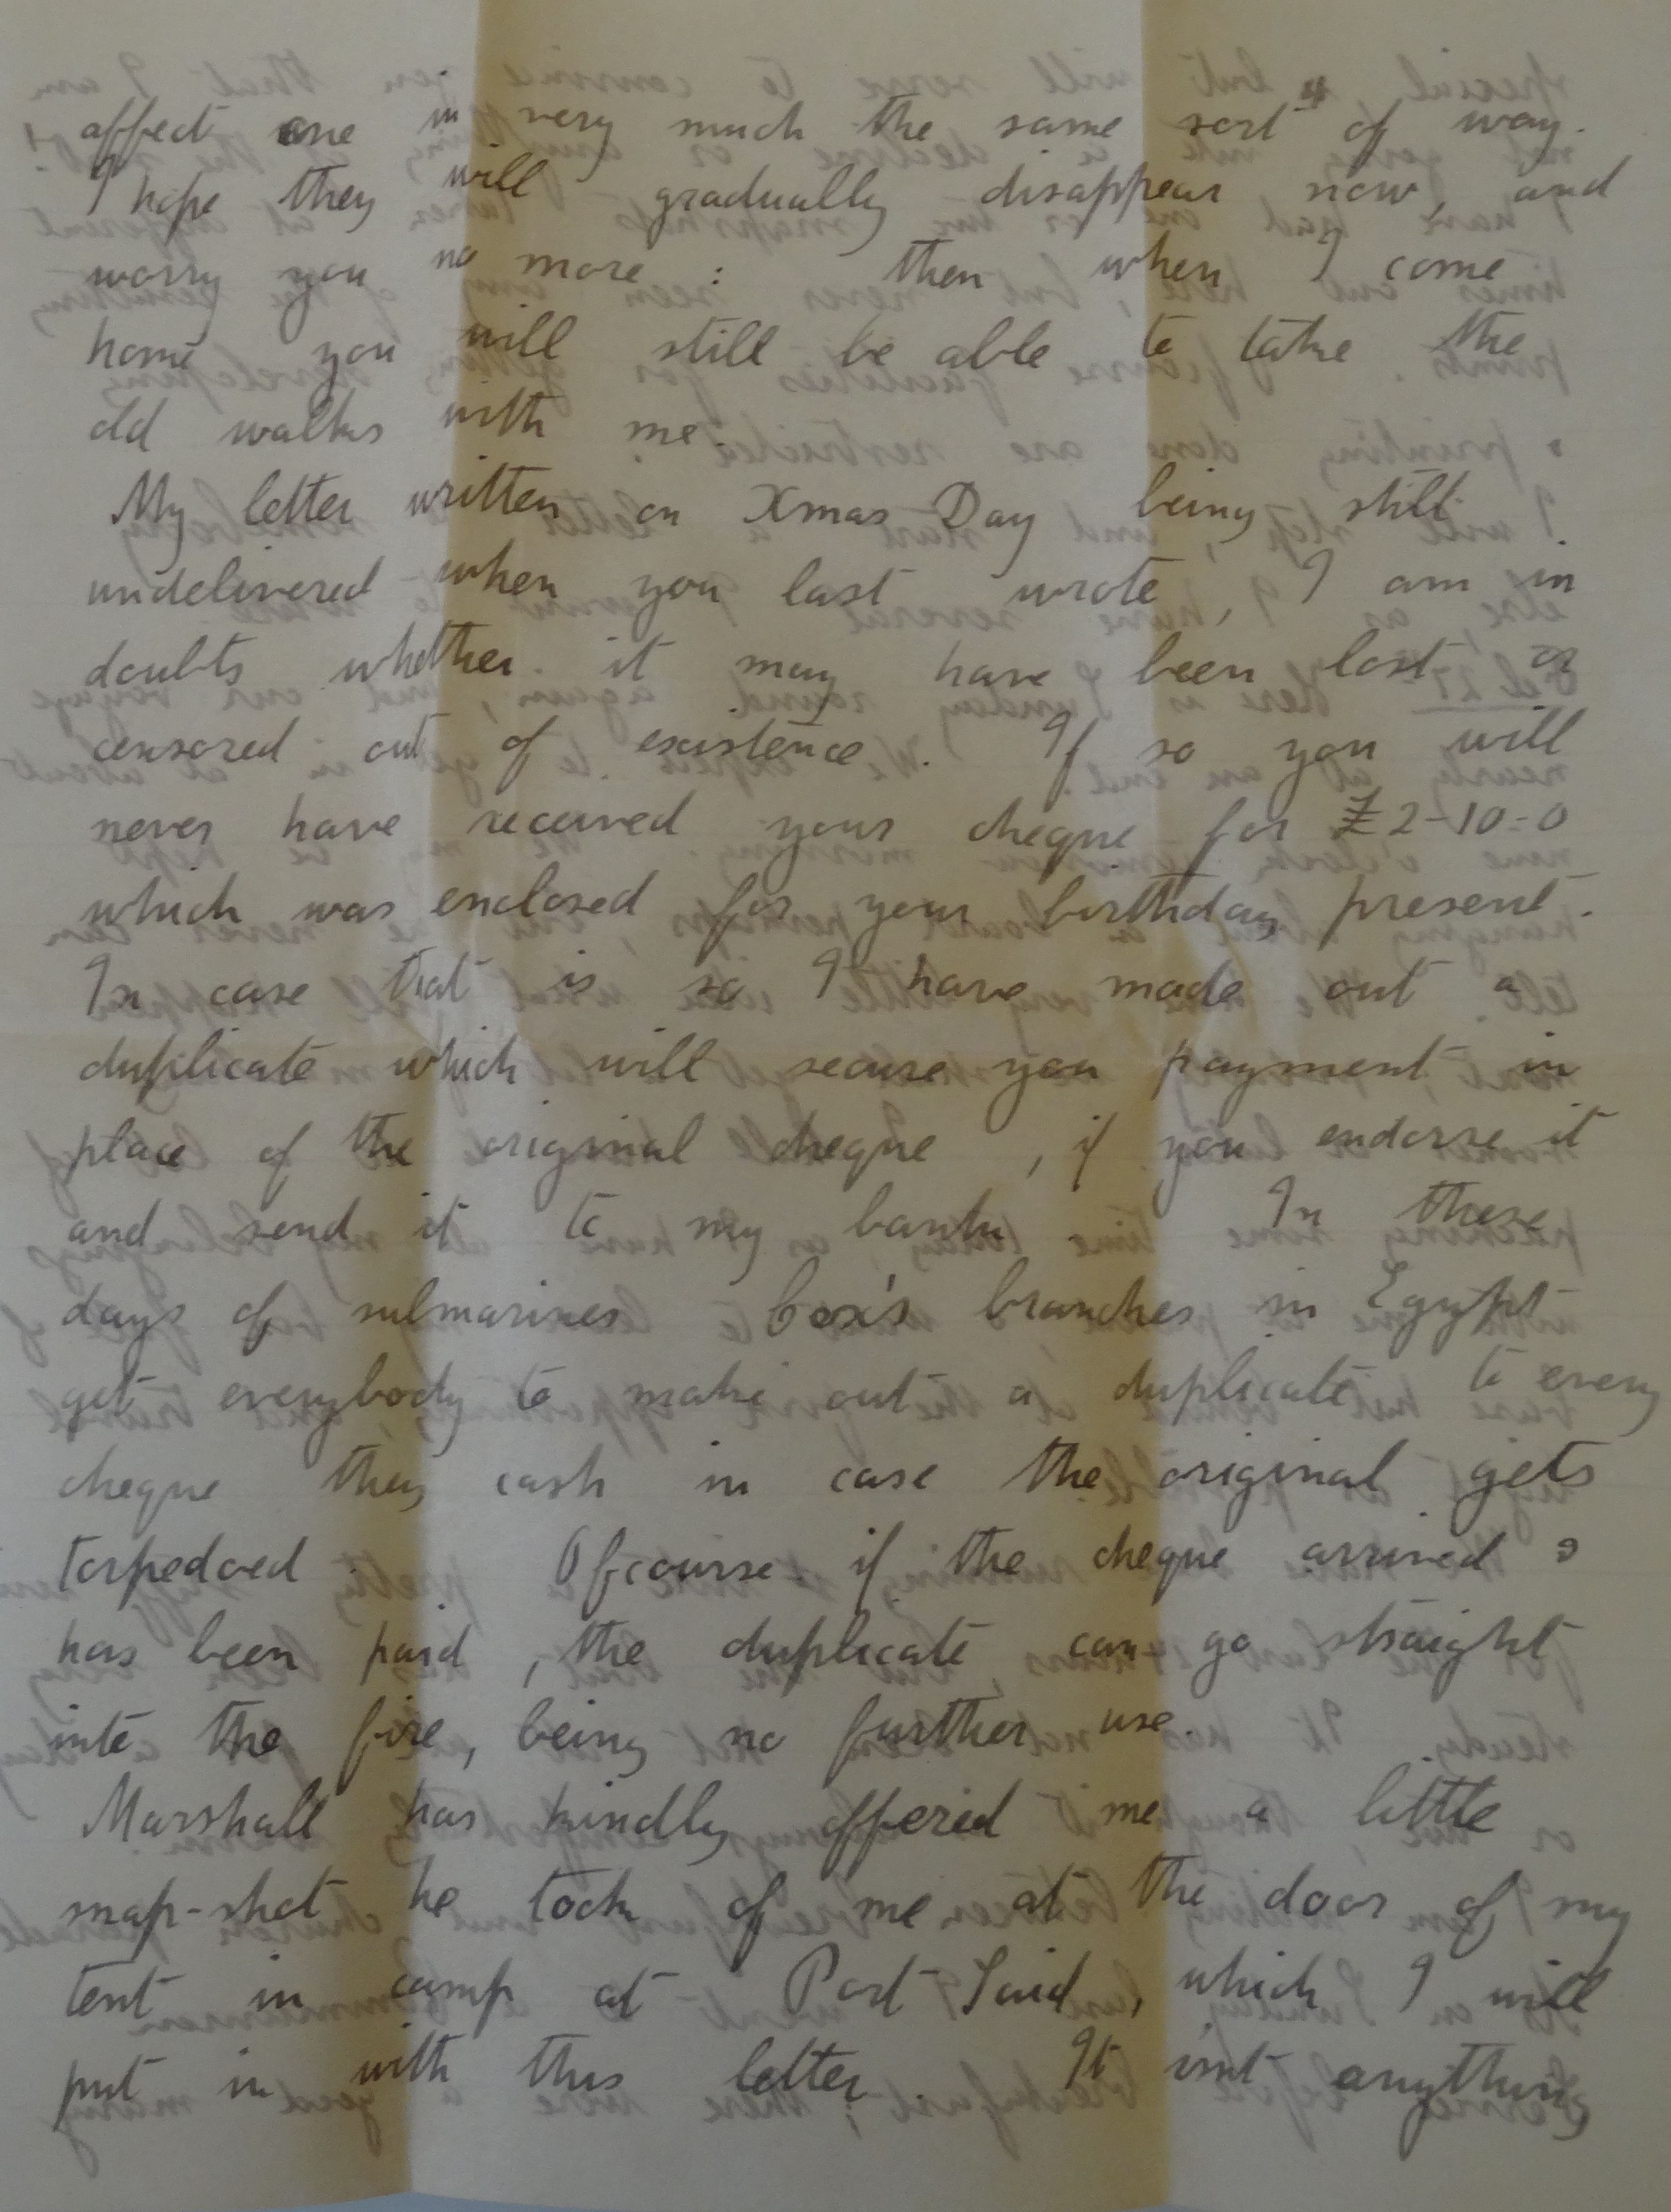 affect one in very much the same sort of way.
I hope they will gradually disappear now, and
worry you no more : then when I come
home you will still be able to take the
old walks with me.
My letter written on Xmas Day being still
undelivered when you last wrote, I am in
doubts whether it may have been lost or
censored out of existence. If so you will
never have received your cheque for £2-10-0
which was enclosed for your birthday present.
In case that is so I have made out a
duplicate which will secure you payment in
place of the original cheque, if you endorse it
and send it to my bank. In these
days of submarines Cox's branches in Egypt
get everybody to make out a duplicate to every
cheque they cash in case the original gets
torpedoed. Ofcourse if the cheque arrived &
has been paid, the duplicate can go straight
into the fire, being no further use.
Marshall has kindly offered me a little
snap-shot he took of me at the door of my
tent in camp at Port Said, which I will
put in with this letter. It isnt anything